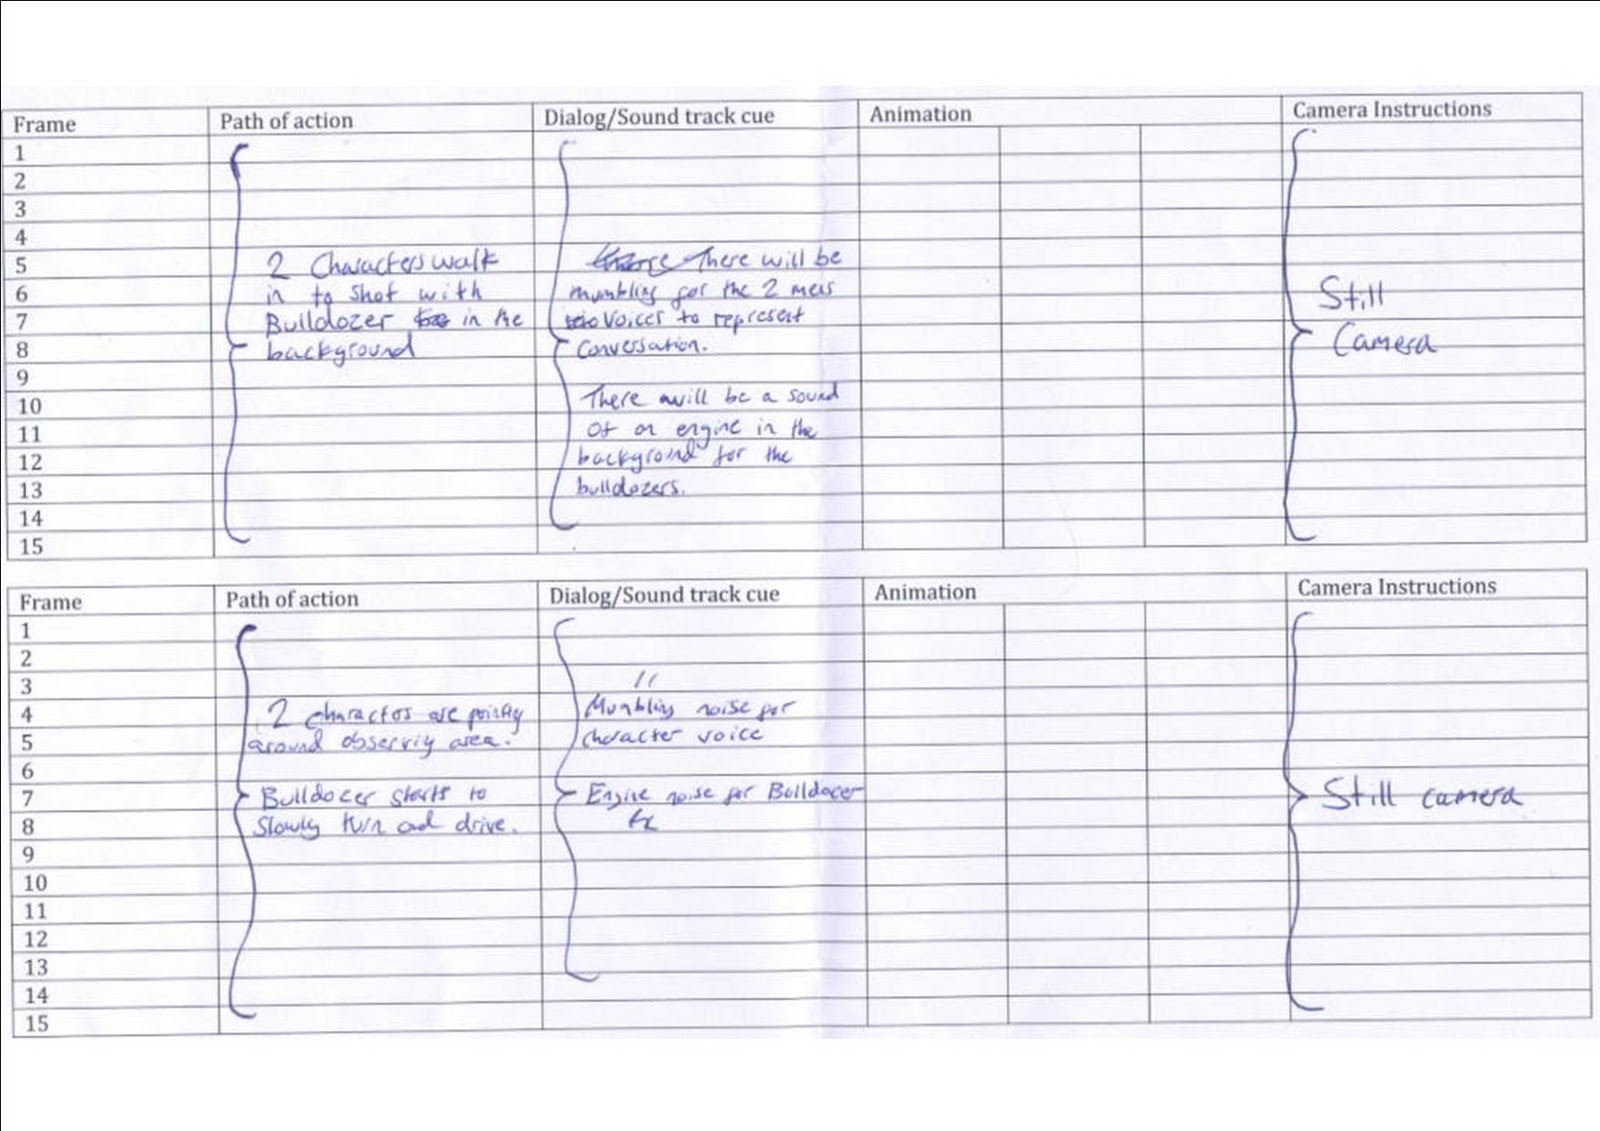 Frame Path of action Dialog/Sound track cue Animation Camera Instructions
1
2
3
4
5 2 Characters walk There will be
6 in to shot with mumbling for the 2 mens Still
7 Bulldozer in the voices to represent
8 background Conversation. Camera
9
10 There will be a sound
11 of an engine in the
12 background for the
13 bulldozers.
14
15
Frame Path of action Dialog/Sound track cue Animation Camera Instructions
1
2
3 "
4 2 charactos are pointing Mumbling noise for
5 around observing area. character voice
6
7 Bulldozer starts to Engine noise for Bulldozer Still camera
8 Slowly turn and drive.
9
10
11
12
13
14
15